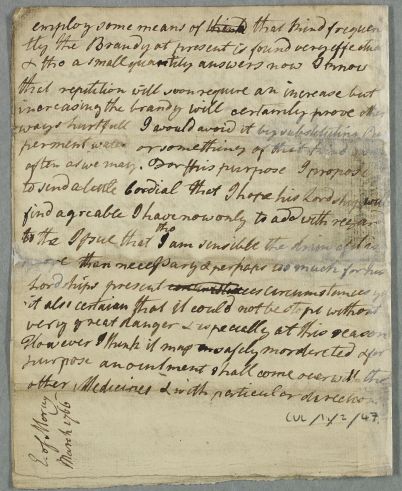 employ some means of that kind frequen
tly the Brandy at present is found very effectua
& tho a small quantity answers now I know
that repetition will soon require an increase but
increasing the brandy will certainly prove other
ways hurtfull I would avoid it by substituting Pe
perment water or something of that kind
often as we may. For this purpose I propose
to send a little Cordial that I hope his Lordship will
find agreeable I have now only to add with regard
to the Issue that tho I am sensible the
more than necessary & perhaps too much for his
Lordships present circumstances
it also certain that it could not be stopt without
very great danger & especially at this season
However I think it may safely moderated & for
purpose an ointment shall come over wt the
other Medicines & with particular direction
E. of Moray
March 1766
CUL/1/2/47